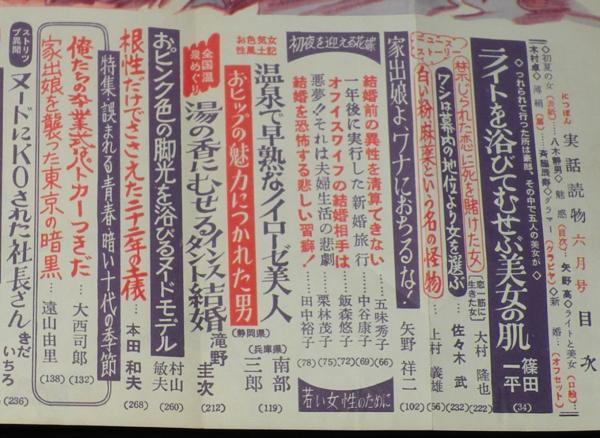 にっぽん
実話読物 六月号 目次
◇初夏の女(表紙)…八木静男◇魅惑(目次)…矢野高◇ライトと美女(口絵)…
木村卓◇薄絹(扉)…斉藤茂寿◇グラマー(グラビヤ)◇新婚…(オフセット)
◇つれられて行った所は豪邸、その中で五人の美女が◇
ライトを浴びてむせぶ美女の肌 篠田一平 (34)
禁じられた恋に死を賭けた女 (恋一筋に生きた女) 大村隆也 (222)
ワシは幕内の地位より女を選ぶ 佐々木武 (232)
ニュース・ストーリー
白い粉麻薬という名の怪物 上村義雄 (56)
家出娘よ、ワナにおちるな! 矢野祥二 (102)
初夜を迎える花嫁
結婚前の異性を清算できない 五味秀子 (66)
一年後に実行した新婚旅行 中谷康子 (69)
オフイスワイフの結婚相手は 飯森悠子 (72)
悪夢!それは夫婦生活の悲劇 栗林茂子 (75)
結婚を恐怖する悲しい習癖! 田中裕子 (78)
若い女性のために
お色気女性風土記
温泉で早熟なノイローゼ美人 (兵庫県)
おヒップの魅力につかれた男 (静岡県)
南部三郎 (119)
全国温泉めぐり
湯の香にむせるインスタント結婚 滝野圭次 (212)
おピンク色の脚光を浴びるヌードモデル 村山敏夫 (260)
根性だけでささえた二十年の土俵 本田和夫 (268)
特集・誤まれる青春・暗い十代の季節
俺たちの卒業式はトカーつきだ 大西司郎 (132)
家出娘を襲った東京の暗黒 遠山由里 (138)
ストリップ異聞
ヌードにKOされた社長さん きだいちろ (236)